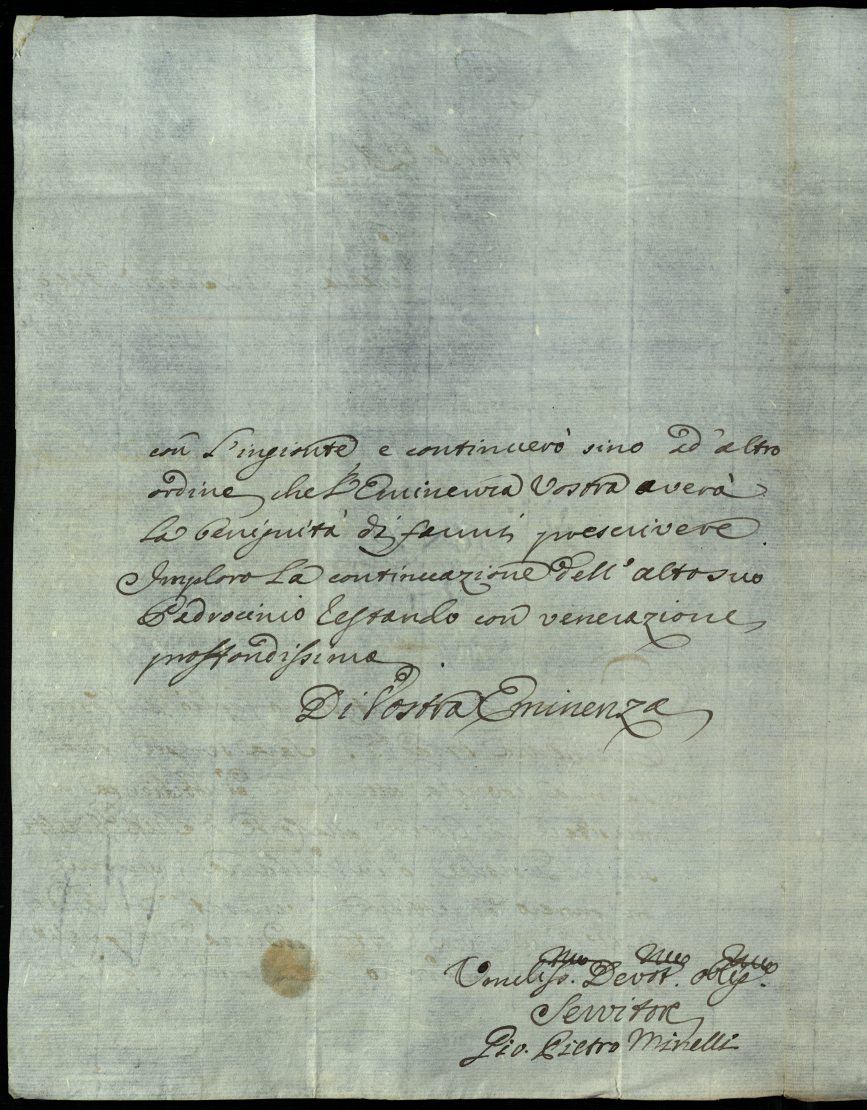 con L'ingionte e continuerò sino ad'altro
ordine che L'Eminenza Vostra averà
La benignità di farmi prescrivere.
Imploro La continuazione dell'alto suo
Padrocinio Restando con venerazione
proffondissima
Di Vostra Eminenza
Umiliss.mo Devot.mo oblig.mo
Servitore
Gio. Pietro Minelli